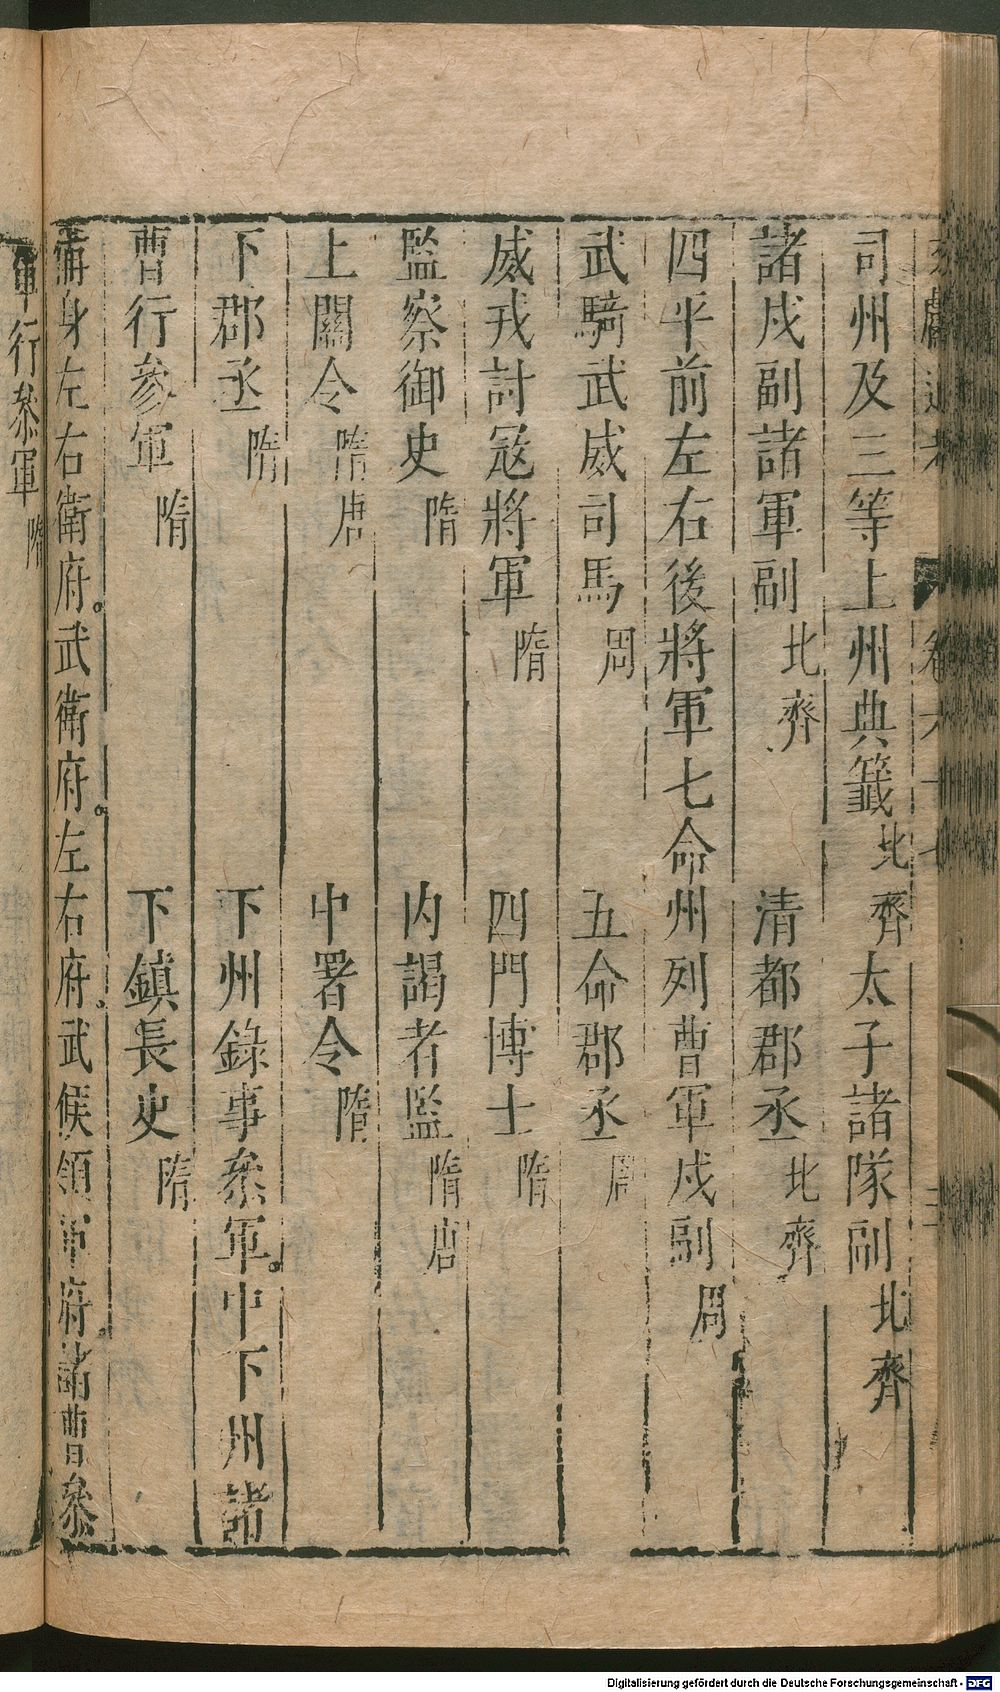 司州及三等上州典籖北齊太子諸隊副北齊
諸戍副諸軍副北齊 清都郡丞北齊
四平前左右後將軍七命州列曹軍戍副周
武騎武威司馬周 五命郡丞周
威戎討冦將軍隋 四門博士隋
監察御史隋 内謁者監隋唐
上關令隋唐 中署令隋
下郡丞隋 下州錄事叅軍。中下州諸
曹行參軍隋 下鎮長史隋
備身左右衛府。武衛府。左右府。武候領軍府。諸曹叅
軍行叅軍隋
卷六十七
Digitalisierung gefördert durch die Deutsche Forschungsgemeinschaft - DFG